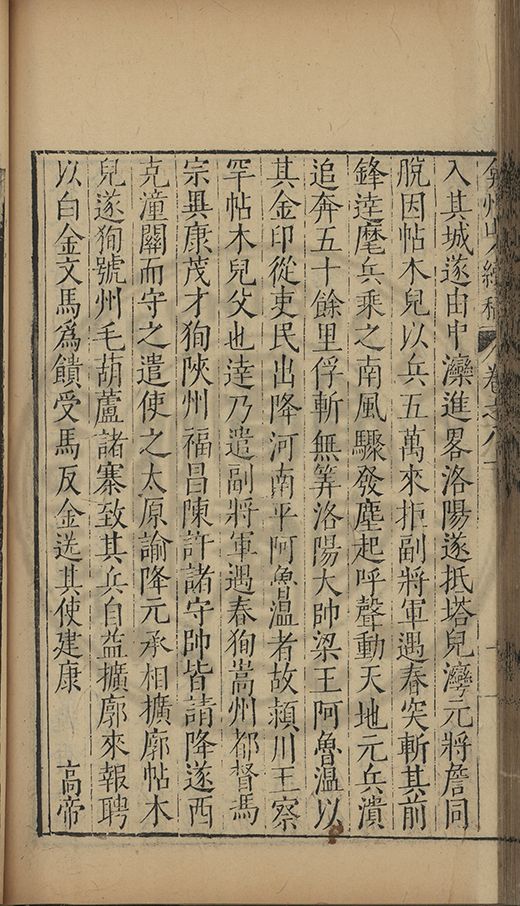 弇州山人續稿 卷之八十
入其城遂由中灤進畧洛陽遂抵塔兒灣元將詹同
脫因帖木兒以兵五萬來拒副將軍遇春突斬其前
鋒達麾兵乘之南風驟發塵起呼聲動天地元兵潰
追奔五十餘里俘斬無筭洛陽大帥梁王阿魯溫以
其金印從吏民出降河南平阿魯溫者故潁川王察
罕帖木兒父也達乃遣副將軍遇春狥嵩州都督馮
宗異康茂才狥陝州福昌陳許諸守帥皆請降遂西
克潼關而守之遣使之太原諭降元丞相擴廓帖木
兒遂狥號州毛葫蘆諸寨致其兵自益擴廓來報聘
以白金文馬爲饋受馬反金送其使建康 高帝